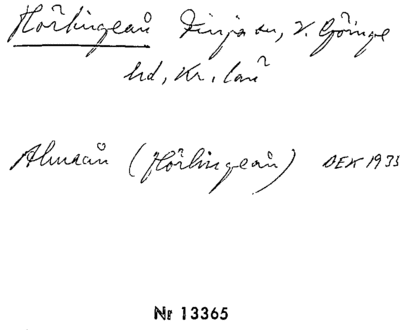 Hörlingeån Finja sn, V. Göinge
hd, Kr. län
Almaån (Hörlingeån) DEK 1933
Nr 13365